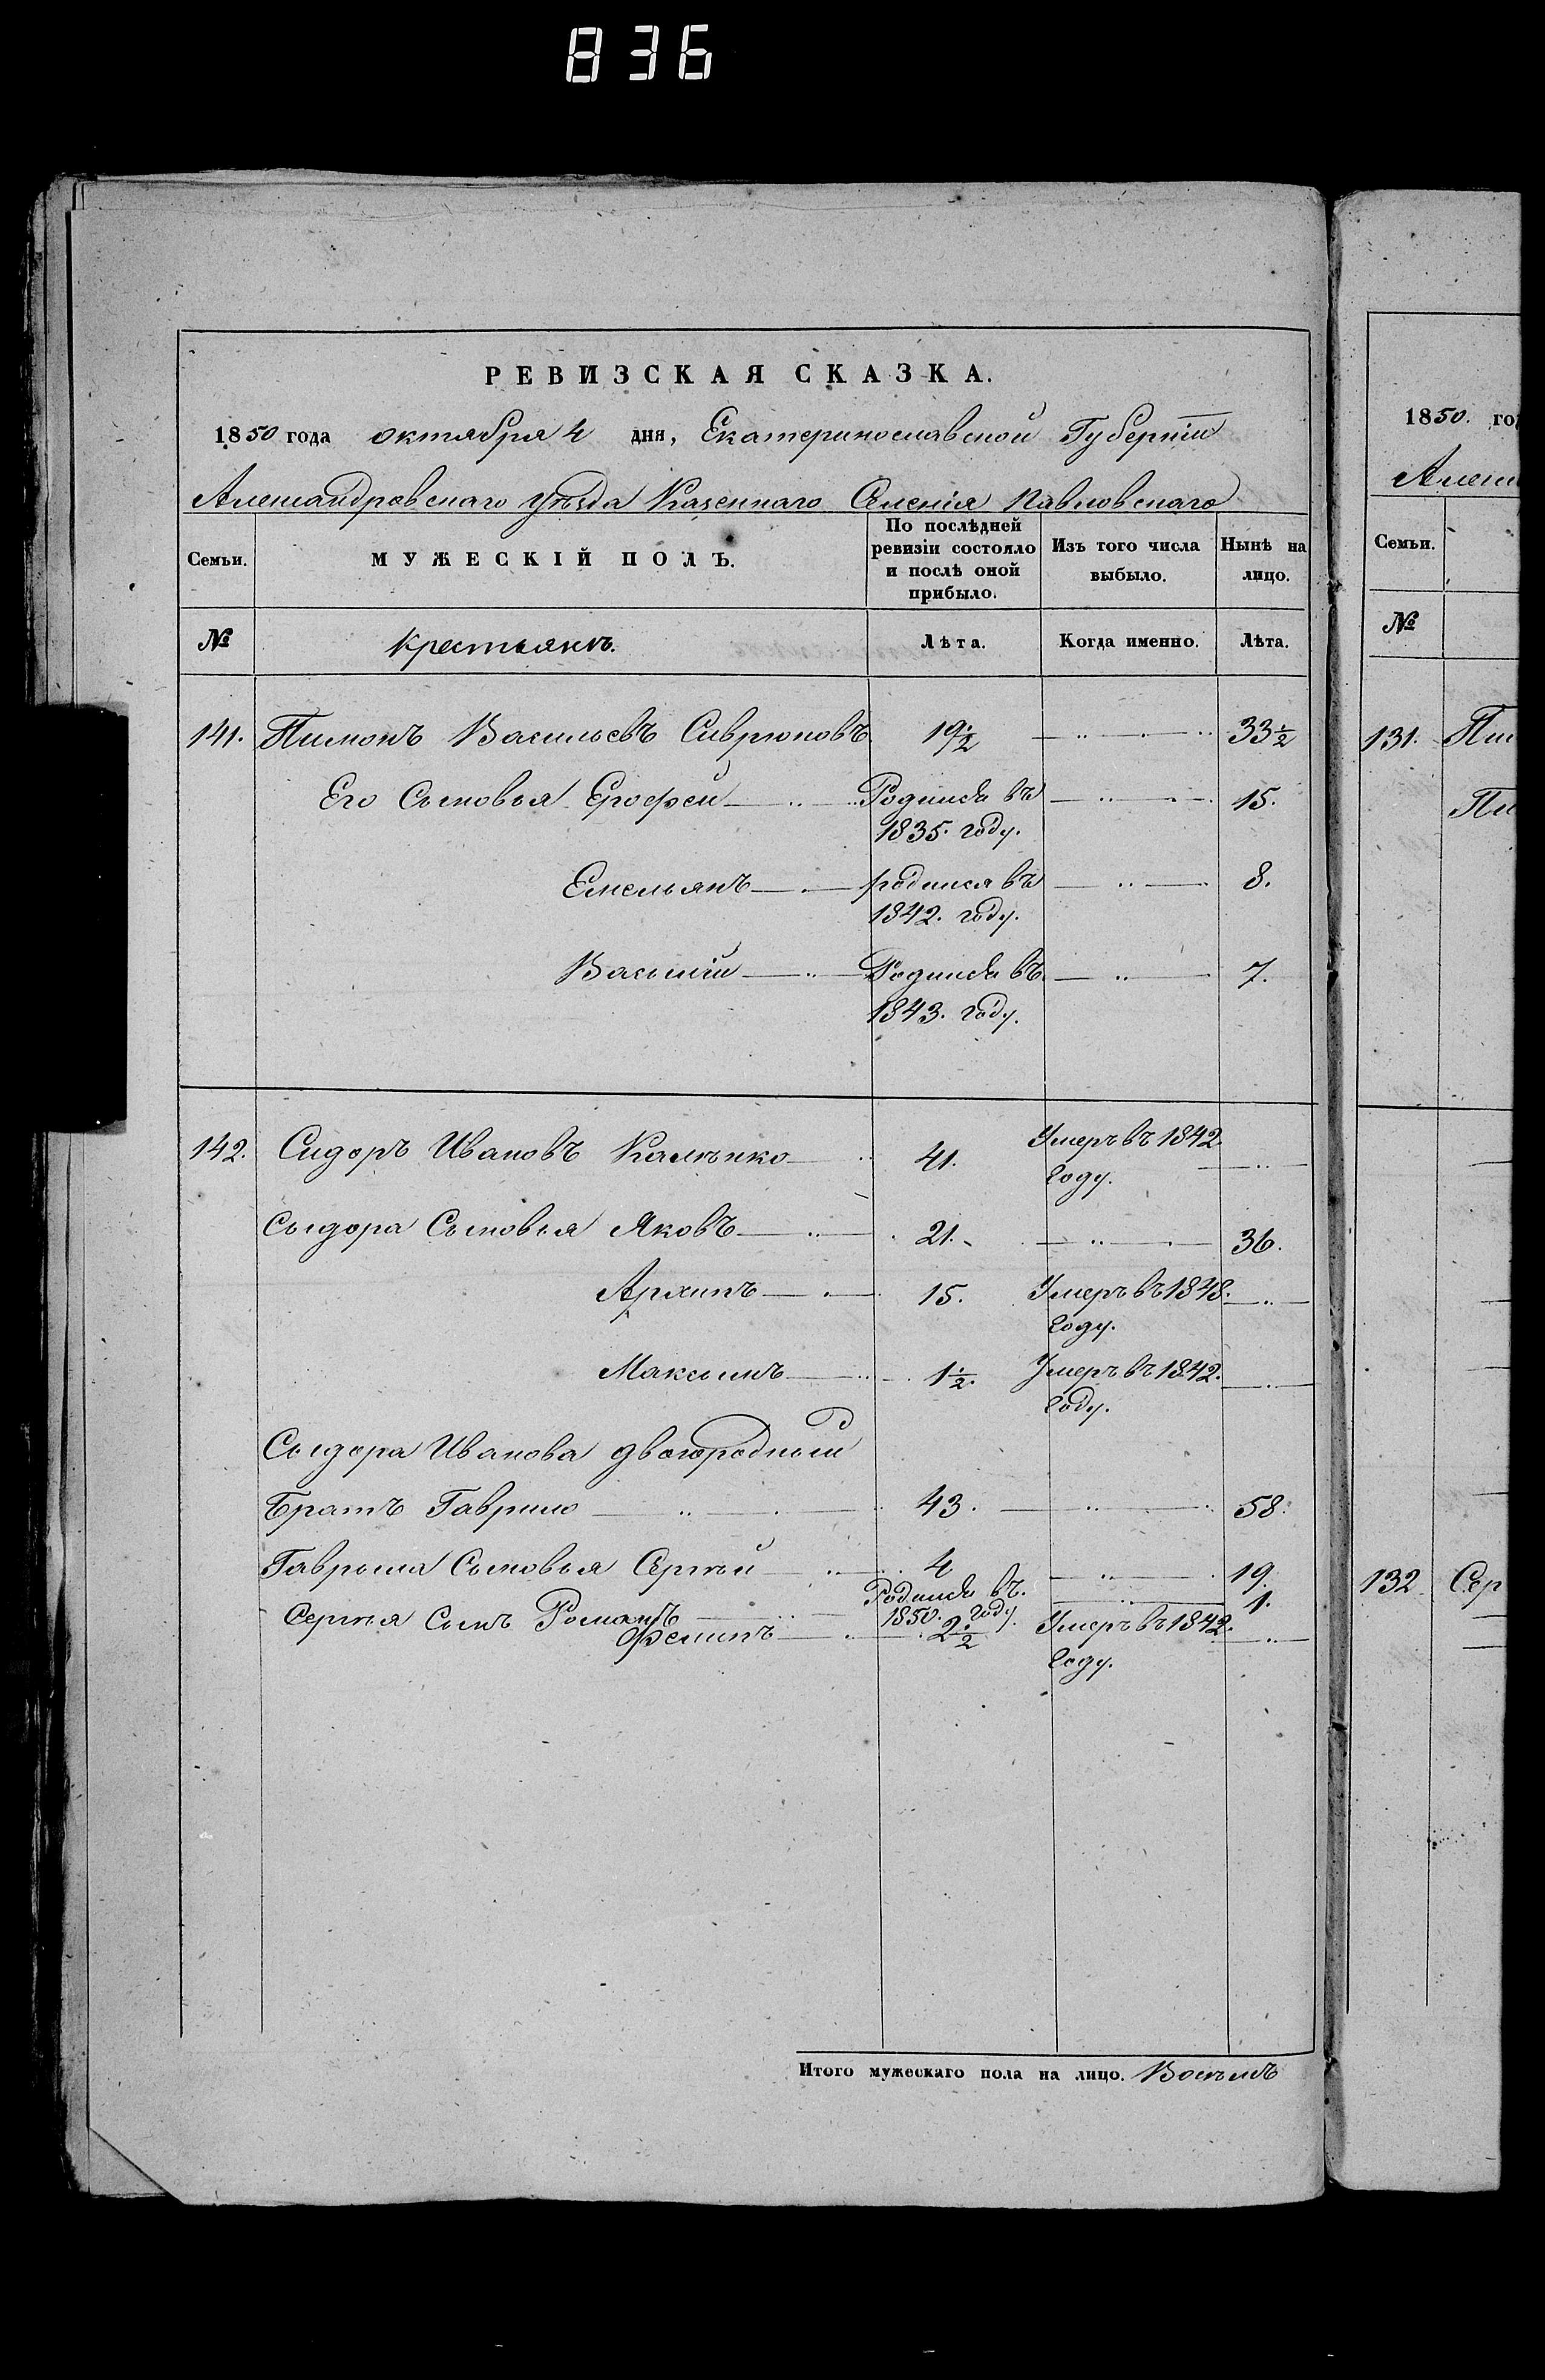 836
РЕВИЗСКАЯ СКАЗКА.
1850 года октября 4 дня, Екатеринославской Губерніи
Александровскаго уѣзда Казеннаго Селенія Павловскаго
Семьи. МУЖЕСКІЙ ПОЛЪ. По послѣдней ревизіи состояло и послѣ оной прибыло. Изъ того числа выбыло. Нынѣ на лицо.
№ Крестьянъ. Лѣта. Когда именно. Лѣта.
141. Пимонъ Васильевъ Сиврюковъ 19 1/2 33 1/2
Его Сыновья Ерофей Родился въ 15.
1835. году.
Емельянъ родился въ 8.
1842. году.
Василій Родился въ 7.
1843. году.
142. Сидоръ Ивановъ 41. Умеръ въ 1842
году.
Сыдора Сыновья Яковъ 21. 36.
Архипъ 15. Умеръ въ 1848.
году.
Максимъ 1 1/2. Умеръ въ 1842.
году.
Сыдора Иванова двоюродный
Братъ Гаврило 43. 58.
Гаврыла Сыновья Сергѣй 4 19.
Сергѣя Сынъ Романъ Родился въ 1850. году. 1.
2 1/2 Умеръ въ 1842.
году.
Итого мужескаго пола на лицо. Восемь
1850. го
Алекс
Семьи.
№
131. Пи
Пи
132 Сер